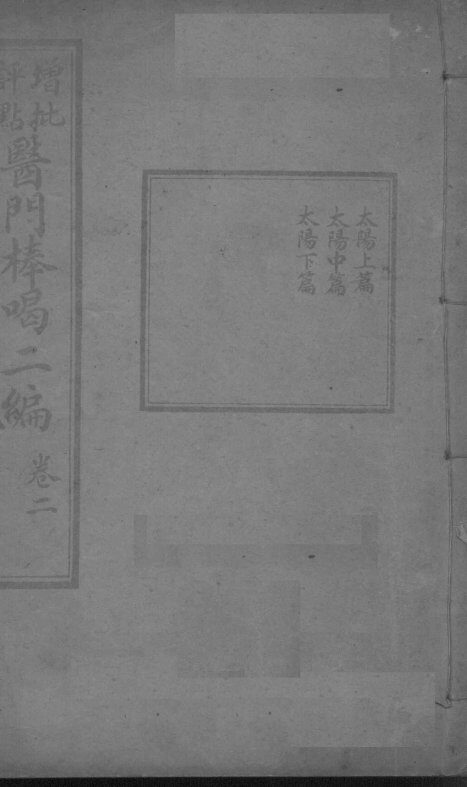 太陽上篇
太陽中篇
太陽下篇
增批
評點
醫門棒喝二編
卷二